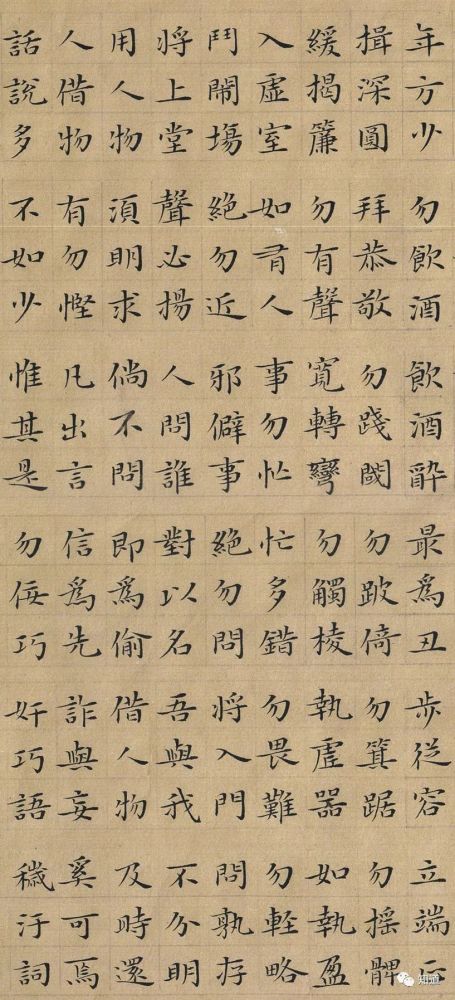 年方少勿飲酒飲酒醉最爲丑步從容立端正
揖深圓拜恭敬勿踐閾勿跛倚勿箕踞勿搖髀
緩揭簾勿有聲寬轉彎勿觸棱執虛器如執盈
入虛室如有人事勿忙忙多錯勿畏難勿輕略
鬥鬧塲絕勿近邪僻事絕勿問將入門問孰存
將上堂聲必揚人問誰對以名吾與我不分明
用人物須明求倘不問即爲偷借人物及時還
人借物有勿慳凡出言信爲先詐與妄奚可焉
話說多不如少惟其是勿佞巧奸巧語穢汙詞